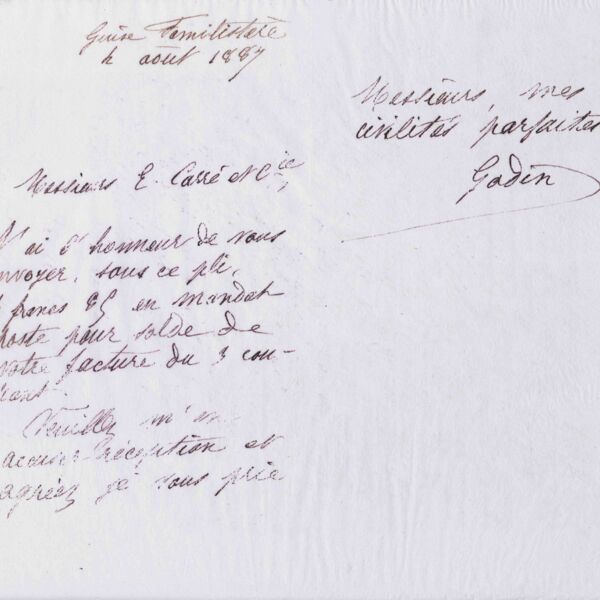 Guise Familistère
4 août 1887
Messieurs E. Carré et Cie,
J'ai l'honneur de vous
envoyer, sous ce pli,
francs 85 en mandat
poste pour solde de
votre facture du 3 cou-
rant.
Veuillez m'en
accuser réception et
agréer, je vous prie
Messieurs, mes
civilités parfaites
Godin